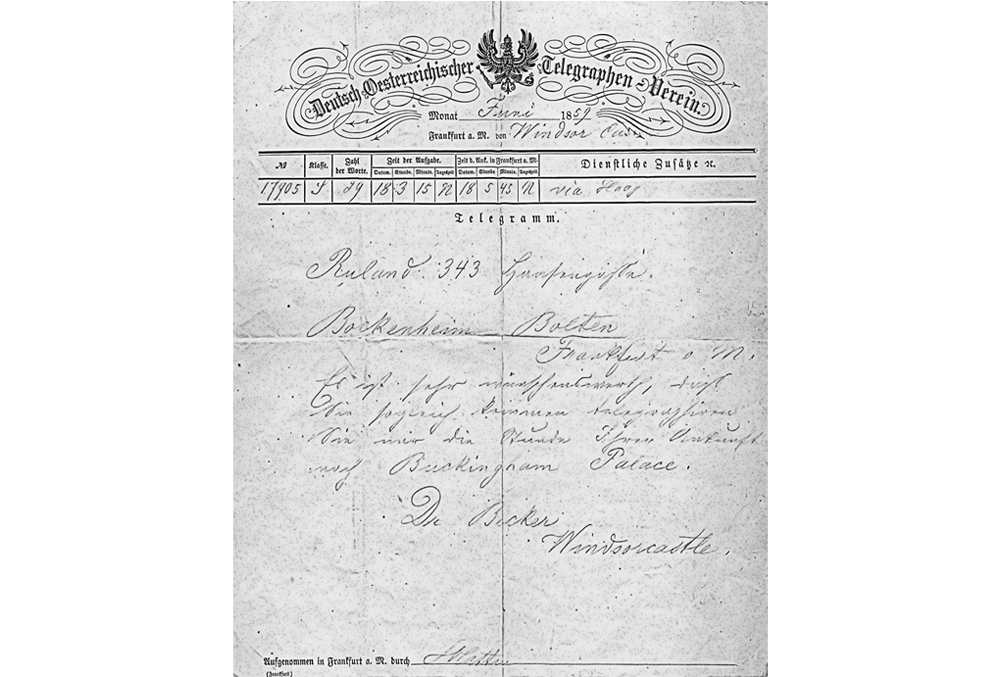 Deutsch-Oesterreichischer Telegraphen-Verein.
Monat Juni 1859
Frankfurt a. M. von Windsor
№ Klasse. Zahl der Worte. Zeit der Aufgabe. Zeit d. Ank. in Frankfurt a. M. Dienstliche Zusätze ꝛc.
Datum. Stunde. Minute. Tageszeit Datum. Stunde Minute. Tageszeit
17905 29 18 3 15 N 18 5 43 N via Haag
Telegramm.
Ruland 343
Bockenheim Bolten
Frankfurt a M.
Es ist sehr wünschenswerth, daß
Sie sogleich kommen telegraphiren
Sie mir die Stunde Ihrer Ankunft
nach Buckingham Palace.
Dr Becker
Windsorcastle.
Aufgenommen in Frankfurt a. M. durch
(Frankfurt)